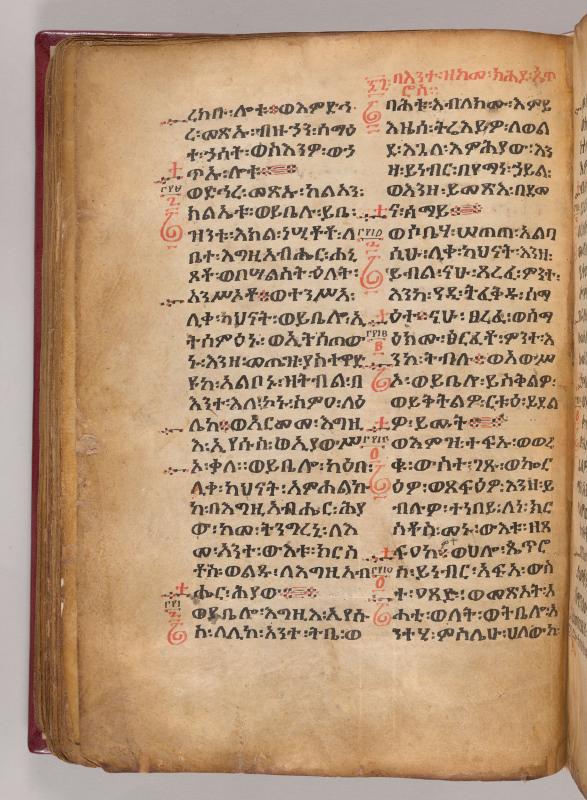 በእንተ፡ዘከመ፡ክሕደ፡ጴጥ
ሮስ።
ረከቡ፡ሎቱ፡ወእምድኅ
ረ፡መጽኡ፡ብዙኃን፡ሰማዕ
ተ፡ኃሰት፡ወስእንዎ፡ውኃ
ጥኡ፡ሎቱ።
ወድኅረ፡መጽኡ፡ከልአን፡
ክልኤቱ፡ወይቤሉ፡ይቤ፡
ዝንቱ፡እክል፡ነሢቶቶ፡ለ
ቤተ፡እግዚአብሔር፡ሐኒ
ጾቶ፡ወበሣልስት፡ዕለት፡
አንሥኦቶ፡ወተንሥአ፡
ሊቀ፡ካህናት፡ወይቤሎ፡ኢ
ትሰምዕኑ፡ወኢትሰጠው
ኑ፡እንዘ፡መጠነዝ፡ያስተዋድ
ዩከ፡አልቦኑ፡ዝትብል፡በ
እንተ፡እለ፡ከኑ፡ስምዐ፡ለዕ
ሌከ፡ወአርመመ፡እግዚ
እ፡ኢየሱስ፡ወኢያውሥ
ኦ፡ቃለ።ወይቤሎ፡ካዕበ፡
ሊቀ፡ካህናት፡አምሐልኩ
ከ፡በእግዚአብሔር፡ሕያ
ው፡ከመ፡ትንግረኒ፡ለእ
መ፡አንተ፡ውእቱ፡ክርስ
ቶስ፡ወልዱ፡ለእግዚአብ
ሔር፡ሕያው።
ወይቤሎ፡እግዚእ፡ኢየሱ
ስ፡ለሊከ፡አንተ፡ትቤ፡ወ
ባሕቱ፡እብለክሙ፡እምይ
እዜሰ፡ትሬእይዎ፡ለወል
ደ፡እጓለ፡እምሕያው፡እን
ዘ፡ይነብር፡በየማነ፡ኃይል፡
ወእንዘ፡ይመጽእ፡በደመ
ና፡ሰማይ።
ወሶቤሃ፡ሠጠጠ፡አልባ
ሲሁ፡ሊቀ፡ካህናት፡እንዘ፡
ይብል፡ናሁ፡ጸረፈ፡ምንተ፡
እንከ፡ዓዲ፡ትፈቅዱ፡ሰማ
ዕተ፡ናሁ፡ፀረፈ፡ወሰማ
ዕክሙ፡ፅርፈቶ፡ምንተ፡እ
ንከ፡ትብሉ፡ወአውሥ
ኡ፡ወይቤሉ፡ይስቅልዎ፡
ወይቅትልዎ፡ርቱዕ፡ይደል
ዎ፡ይሙት።
ወእምዝ፡ተፍኡ፡ወወረ
ቁ፡ውስተ፡ገጹ፡ወኰር
ዕዎ፡ወጸፍዕዎ፡እንዘ፡ይ
ብሉዎ፡ተነበይ፡ለነ፡ክር
ስቶስ፡መኑ፡ውእቱ፡ዘጸ
ፍዐከ፡ወሀሎ፡ጴጥሮ
ስ፡ይነብር፡አፍአ፡ውስ
ተ፡ዐጸድ፡ወመጽአት፡አ
ሐቲ፡ወለት፡ወትቤሎ፡አ
ንተሂ፡ምስሌሁ፡ሀለውከ